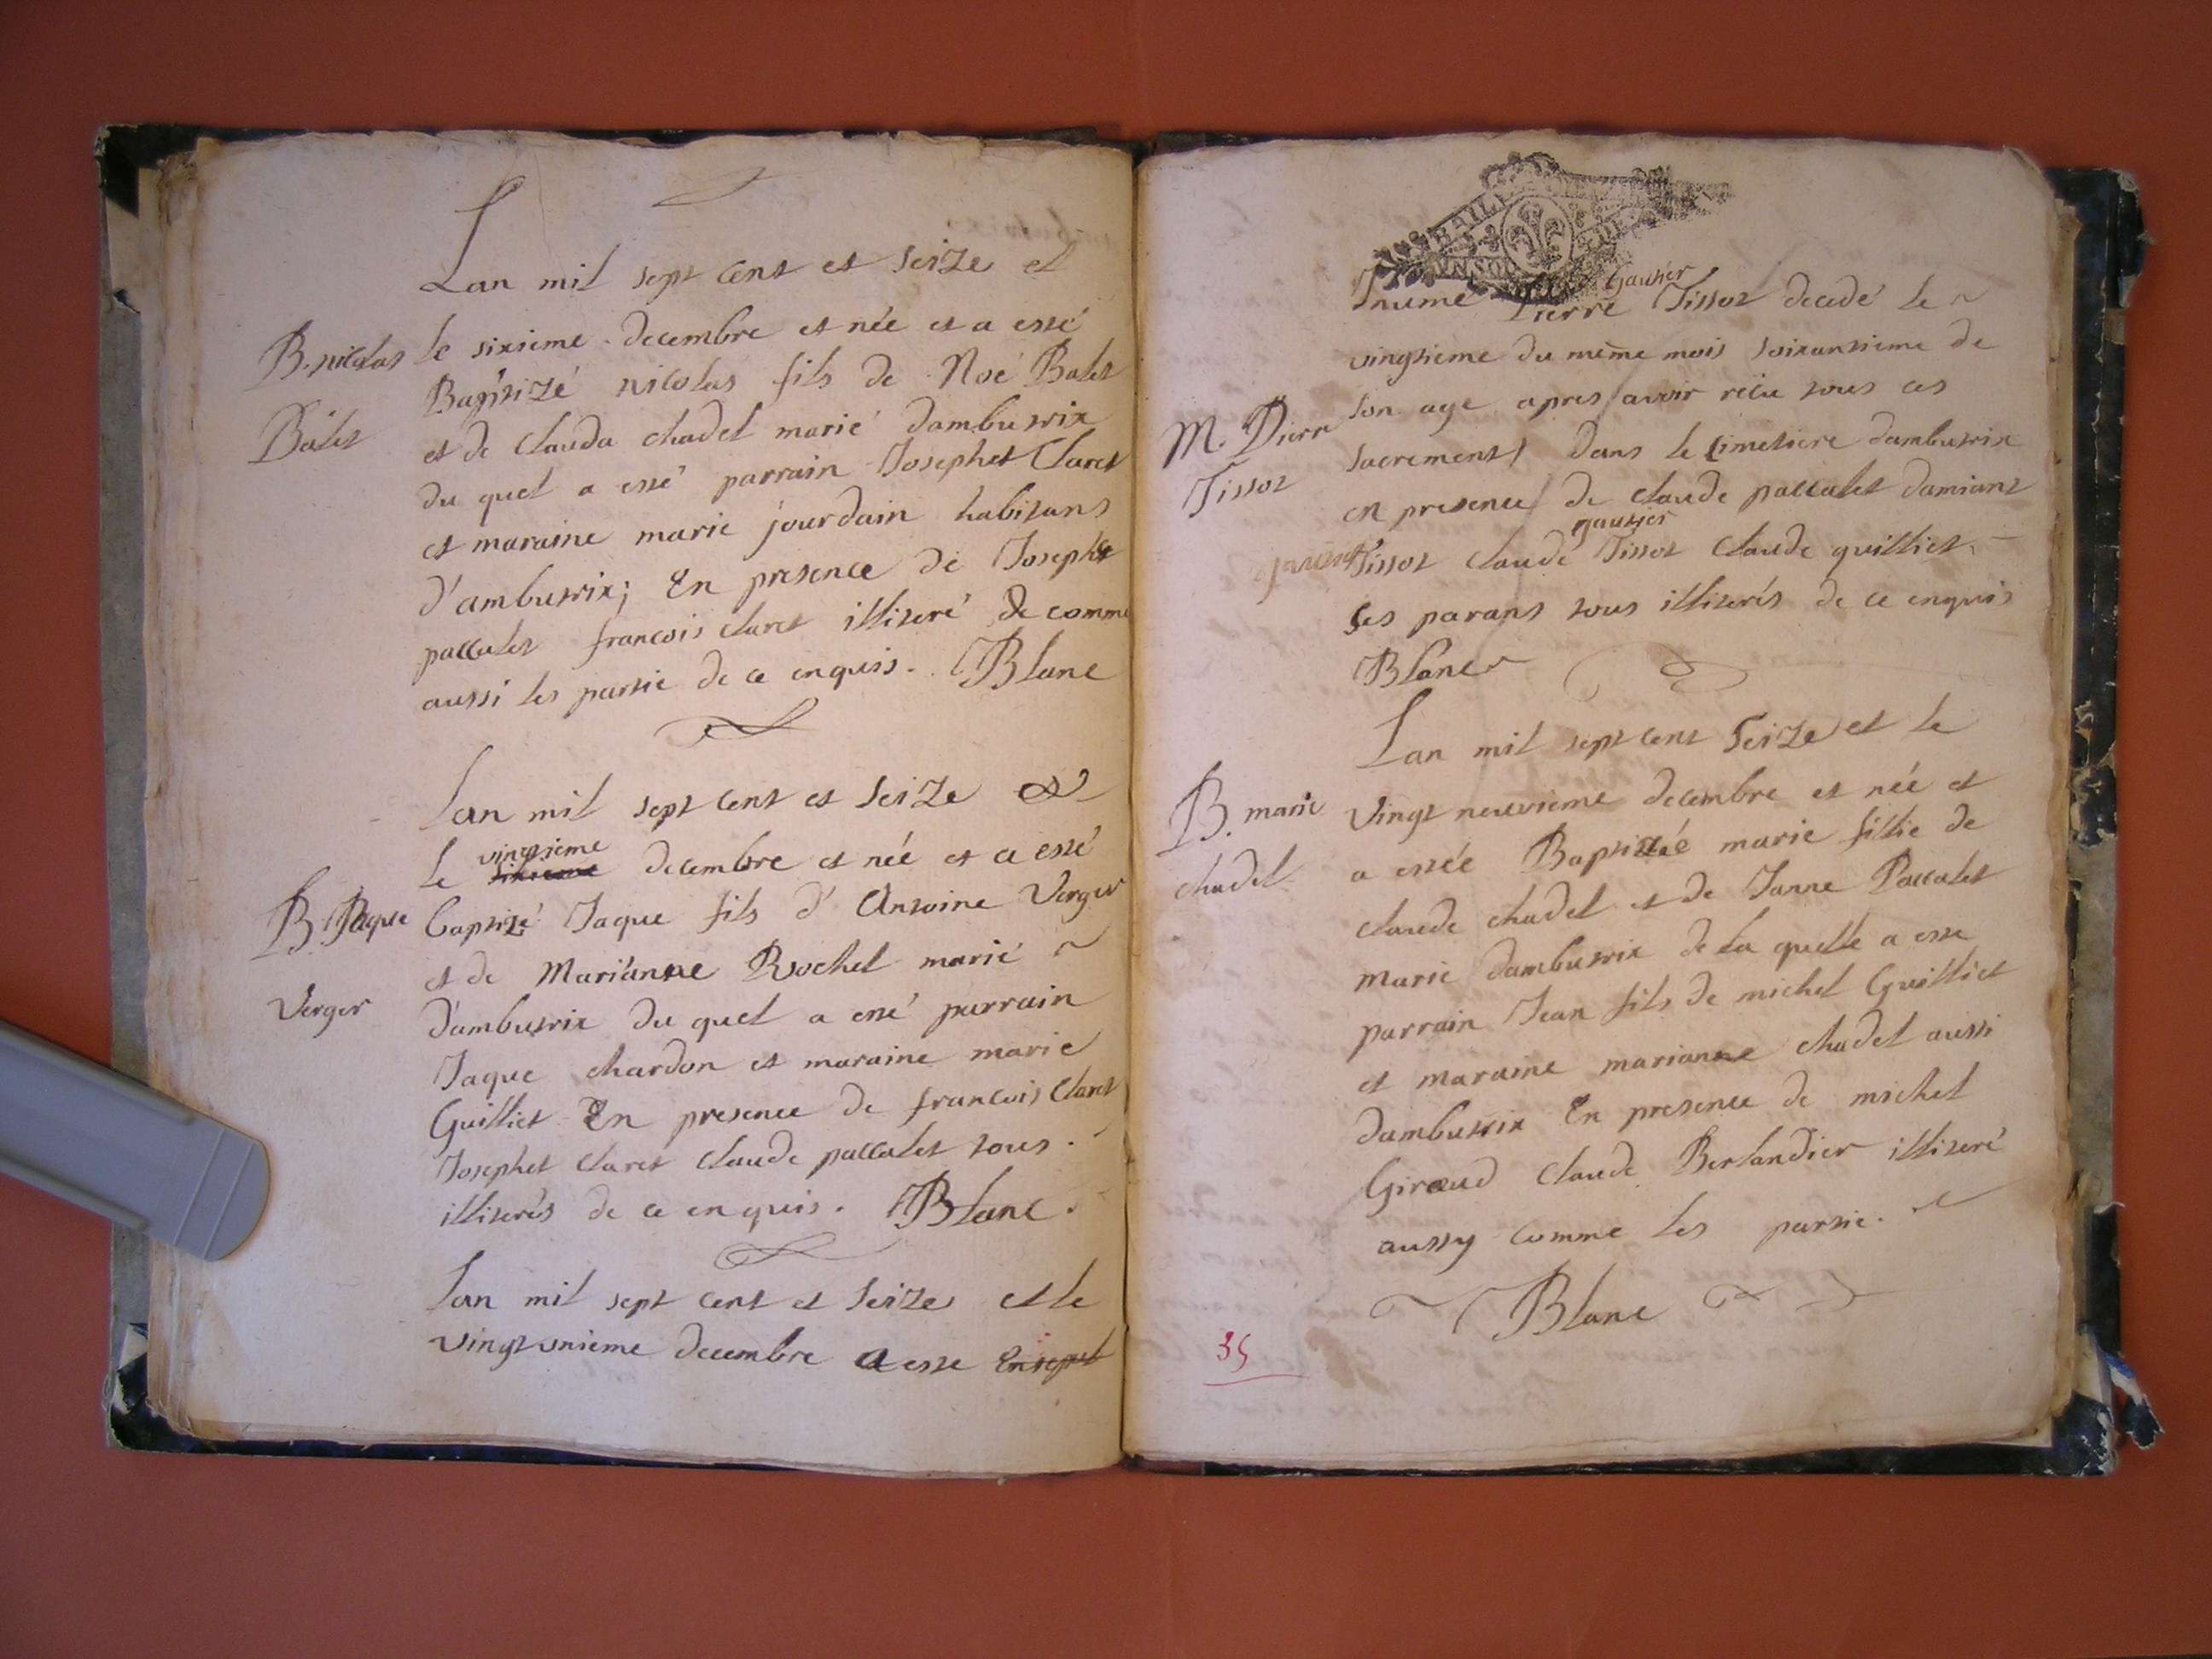 Lan mil sept cent et seize et
B. nicolas
Balet
le sixieme decembre et née et a essé
Baptizé nicolas fils de Noé Balet
et de Clauda chadel marié dambutrix
du quel a essé parrain Josephet Claret
et maraine marie jourdain habitans
d'ambutrix; En presence de Josepht
paccalet francois claret illiteré de comme
aussi les partie de ce enquis. Blanc
Lan mil sept cent et seize et
vingtieme
le sixieme decembre et née et a essé
B. Jaque
Verger
baptizé Jaque fils d' Antoine Verger
et de Marianne Rochet marié
d'ambutrix du quel a essé parrain
Jaque chardon et maraine marie
Guilliet En presence de francois Claret
Josephet claret claude paccalet tous
illiterés de ce enquis. Blanc.
Lan mil sept cent et seize et le
vingt unieme decembre a esse Ensepul
Inumé Pierre Gautier Tissot decedé le
vingtieme du même mois soixantieme de
son age apres avoir recu tous ces
M. Pierr
Tissot
sacrements Dans le Cimetiere dambutrix
en presence de claude paccalet damians
gautier
gautier Tissot claude Tissot Claude guilliet
ses parans tous illiterés de ce enquis
Blanc
Lan mil sept cent Seize et le
B. marie
chadel
Vingt neuvieme decembre et née et
a essée Baptizéé marie fillie de
claude chadel et de Janne Paccalet
marié dambutrix de la quelle a esse
parrain Jean fils de michel Guilliet
et maraine marianne chadel aussi
dambutrix En presence de michel
Giraud Claude Berlandier illiteré
aussy comme les partie.
Blanc
35